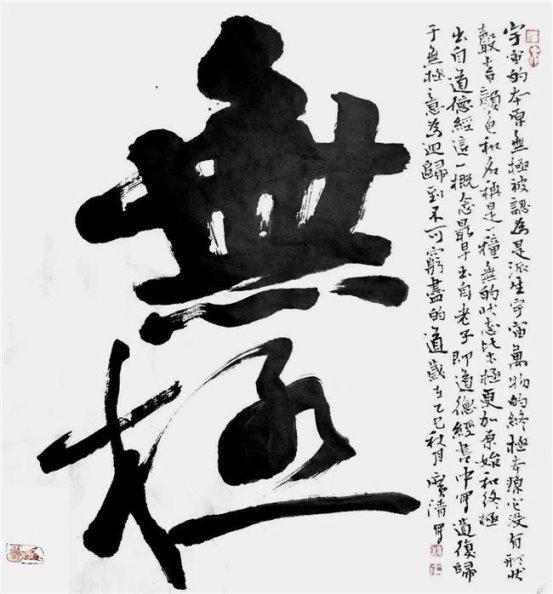 無極
宇宙的本原無極被認為是派生宇宙萬物的終極本源它沒有形狀
聲音顏色和名稱是一種無的狀態比太極更加原始和終極
出自道德經這一概念最早出自老子即道德經書中写道復歸
于無極意為迴歸到不可窮盡的道歲在乙巳秋月清写